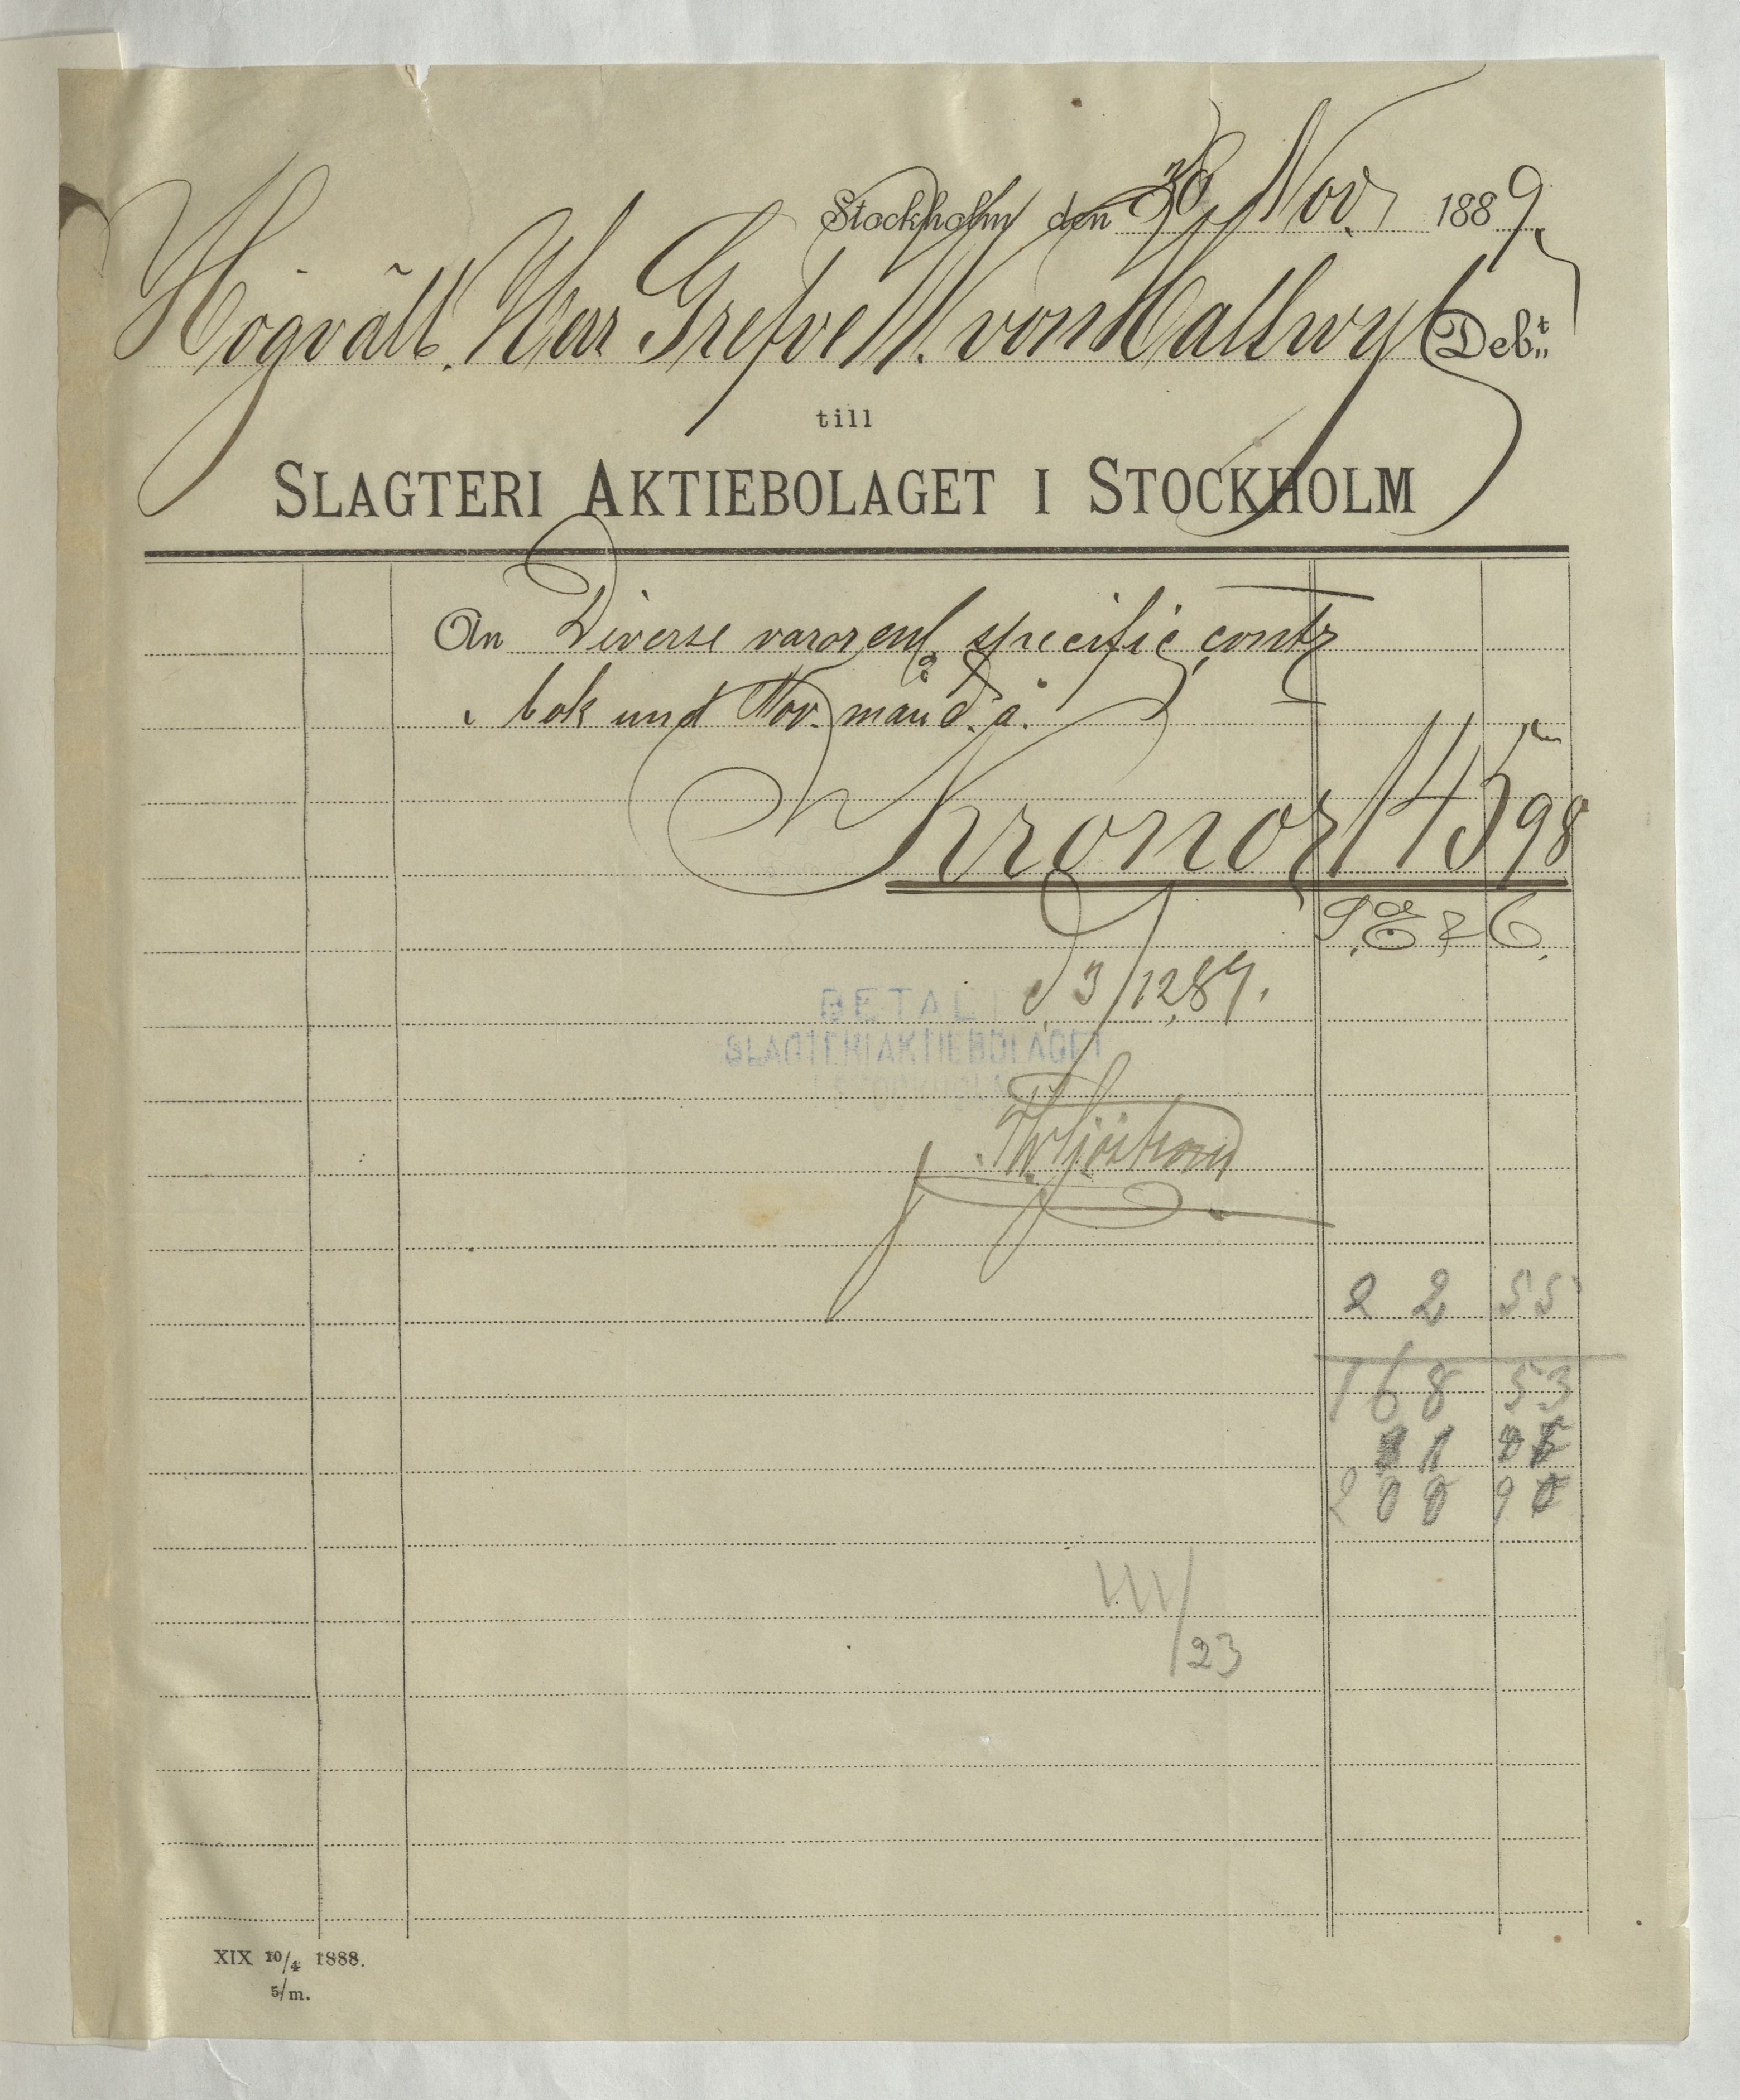 Stockholm den 30 Nov. 1889.
Högvälb. Herr Grefve W. von Hallwyl Deb:t
till
SLAGTERI AKTIEBOLAGET I STOCKHOLM
An Diverse varor enl. specific. contr
bok und Nov. mån d. å.
Kronor 145 98
S. E. & O.
d 3/12 89.
BETALT
SLAGTERIAKTIEBOLAGET
I STOCKHOLM
22 55
168 53
200 90
VII/23
XIX 10/4 1888.
5/m.